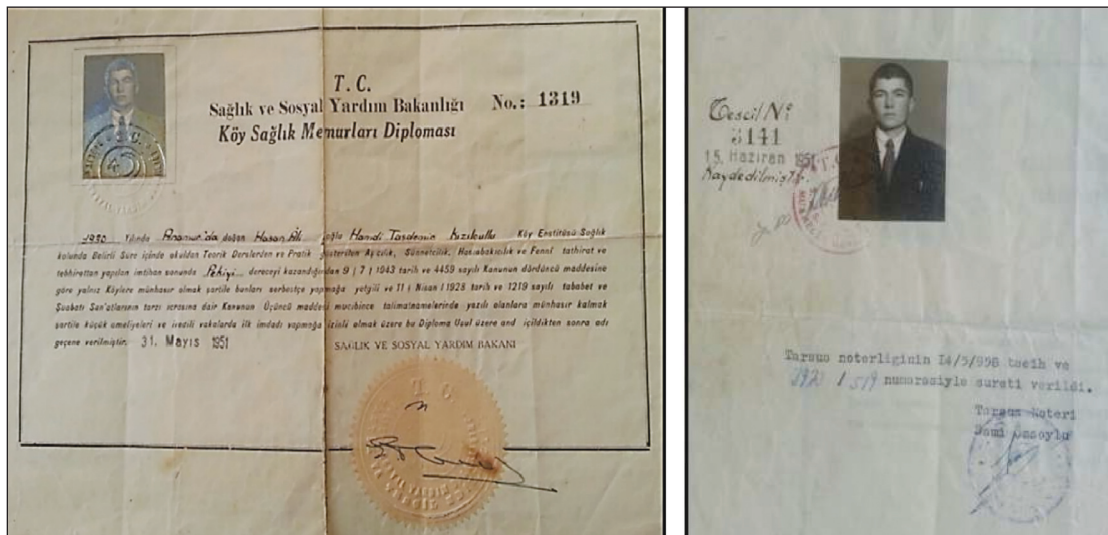 T. C.
Sağlık ve Sosyal Yardım Bakanlığı No.: 1319
Köy Sağlık Memurları Diploması
1930 Yılında Anamur'da doğan Hasan Ali oğlu Hamdi Taşdemir Köy Enstitüsü Sağlık
kolunda Belirli Süre içinde okulan Teorik Derslerden ve Pratik gösterilen Aşıcılık, Sünnetcilik, Hastabakıcılık ve Fennî tathirat ve
tebhirattan yapılan imtihan sonunda Pekiyi dereceyi kazandığından 9 / 7 / 1943 tarih ve 4459 sayılı Kanunun dördüncü maddesine
göre yalnız Köylere münhasır olmak şartile bunları serbestçe yapmağa yetgili ve 11 / Nisan / 1928 tarih ve 1219 sayılı tababet ve
Şuabatı San'atlarının tarzı icrasına dair Kanunun Üçüncü maddesi mucibince talimatnamelerinde yazılı olanlara münhasır kalmak
şartile küçük ameliyeleri ve ivedili vakalarda ilk imdadı yapmağa izinli olmak üzere bu Diploma Usul üzere and içildikten sonra adı
geçene verilmiştir. 31. Mayıs 1951
SAĞLIK VE SOSYAL YARDIM BAKANI
T C
Tescil No
3141
15. Haziran 195
Kaydedilmiştir.
T.C.
Tarsus noterliginin 14/5/958 tarih ve
/ 519 numarasiyle sureti verildi.
Tarsus Noteri